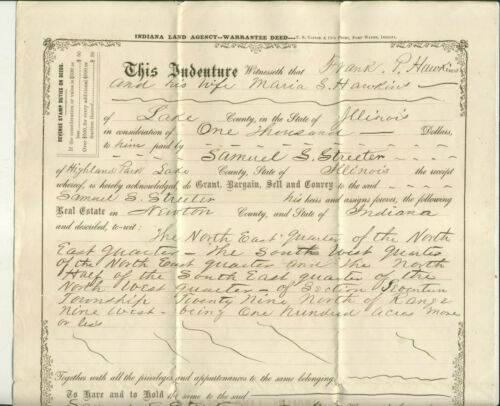 INDIANA LAND AGENCY—WARRANTEE DEED.
REVENUE STAMP DUTIES ON DEEDS.
If the consideration or value is $500, or
This Indenture Witnesseth that Frank P. Hawkins
and his wife Maria S. Hawkins
of Lake County, in the State of Illinois
in consideration of One Thousand Dollars,
to him paid by Samuel S. Streeter
of Highland Park Lake County, State of Illinois the receipt
whereof, is hereby acknowledged, do Grant, Bargain, Sell and Convey to the said
Samuel S. Streeter his heirs and assigns forever, the following
Real Estate in Newton County, and State of Indiana
and described, to-wit:
The North East quarter of the North
East quarter - The South West quarter
of the North East quarter and the North
Half of the South East quarter of the
North West quarter - of Section Seventeen
Township Twenty Nine North of Range
Nine West - being One Hundred acres more
or less
Together with all the privileges and appurtenances to the same belonging
To Have and to Hold the same to the said